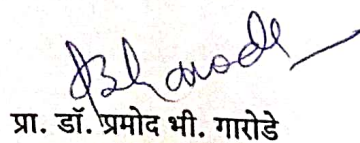 प्रा. डॉ. प्रमोद भी. गारोडे